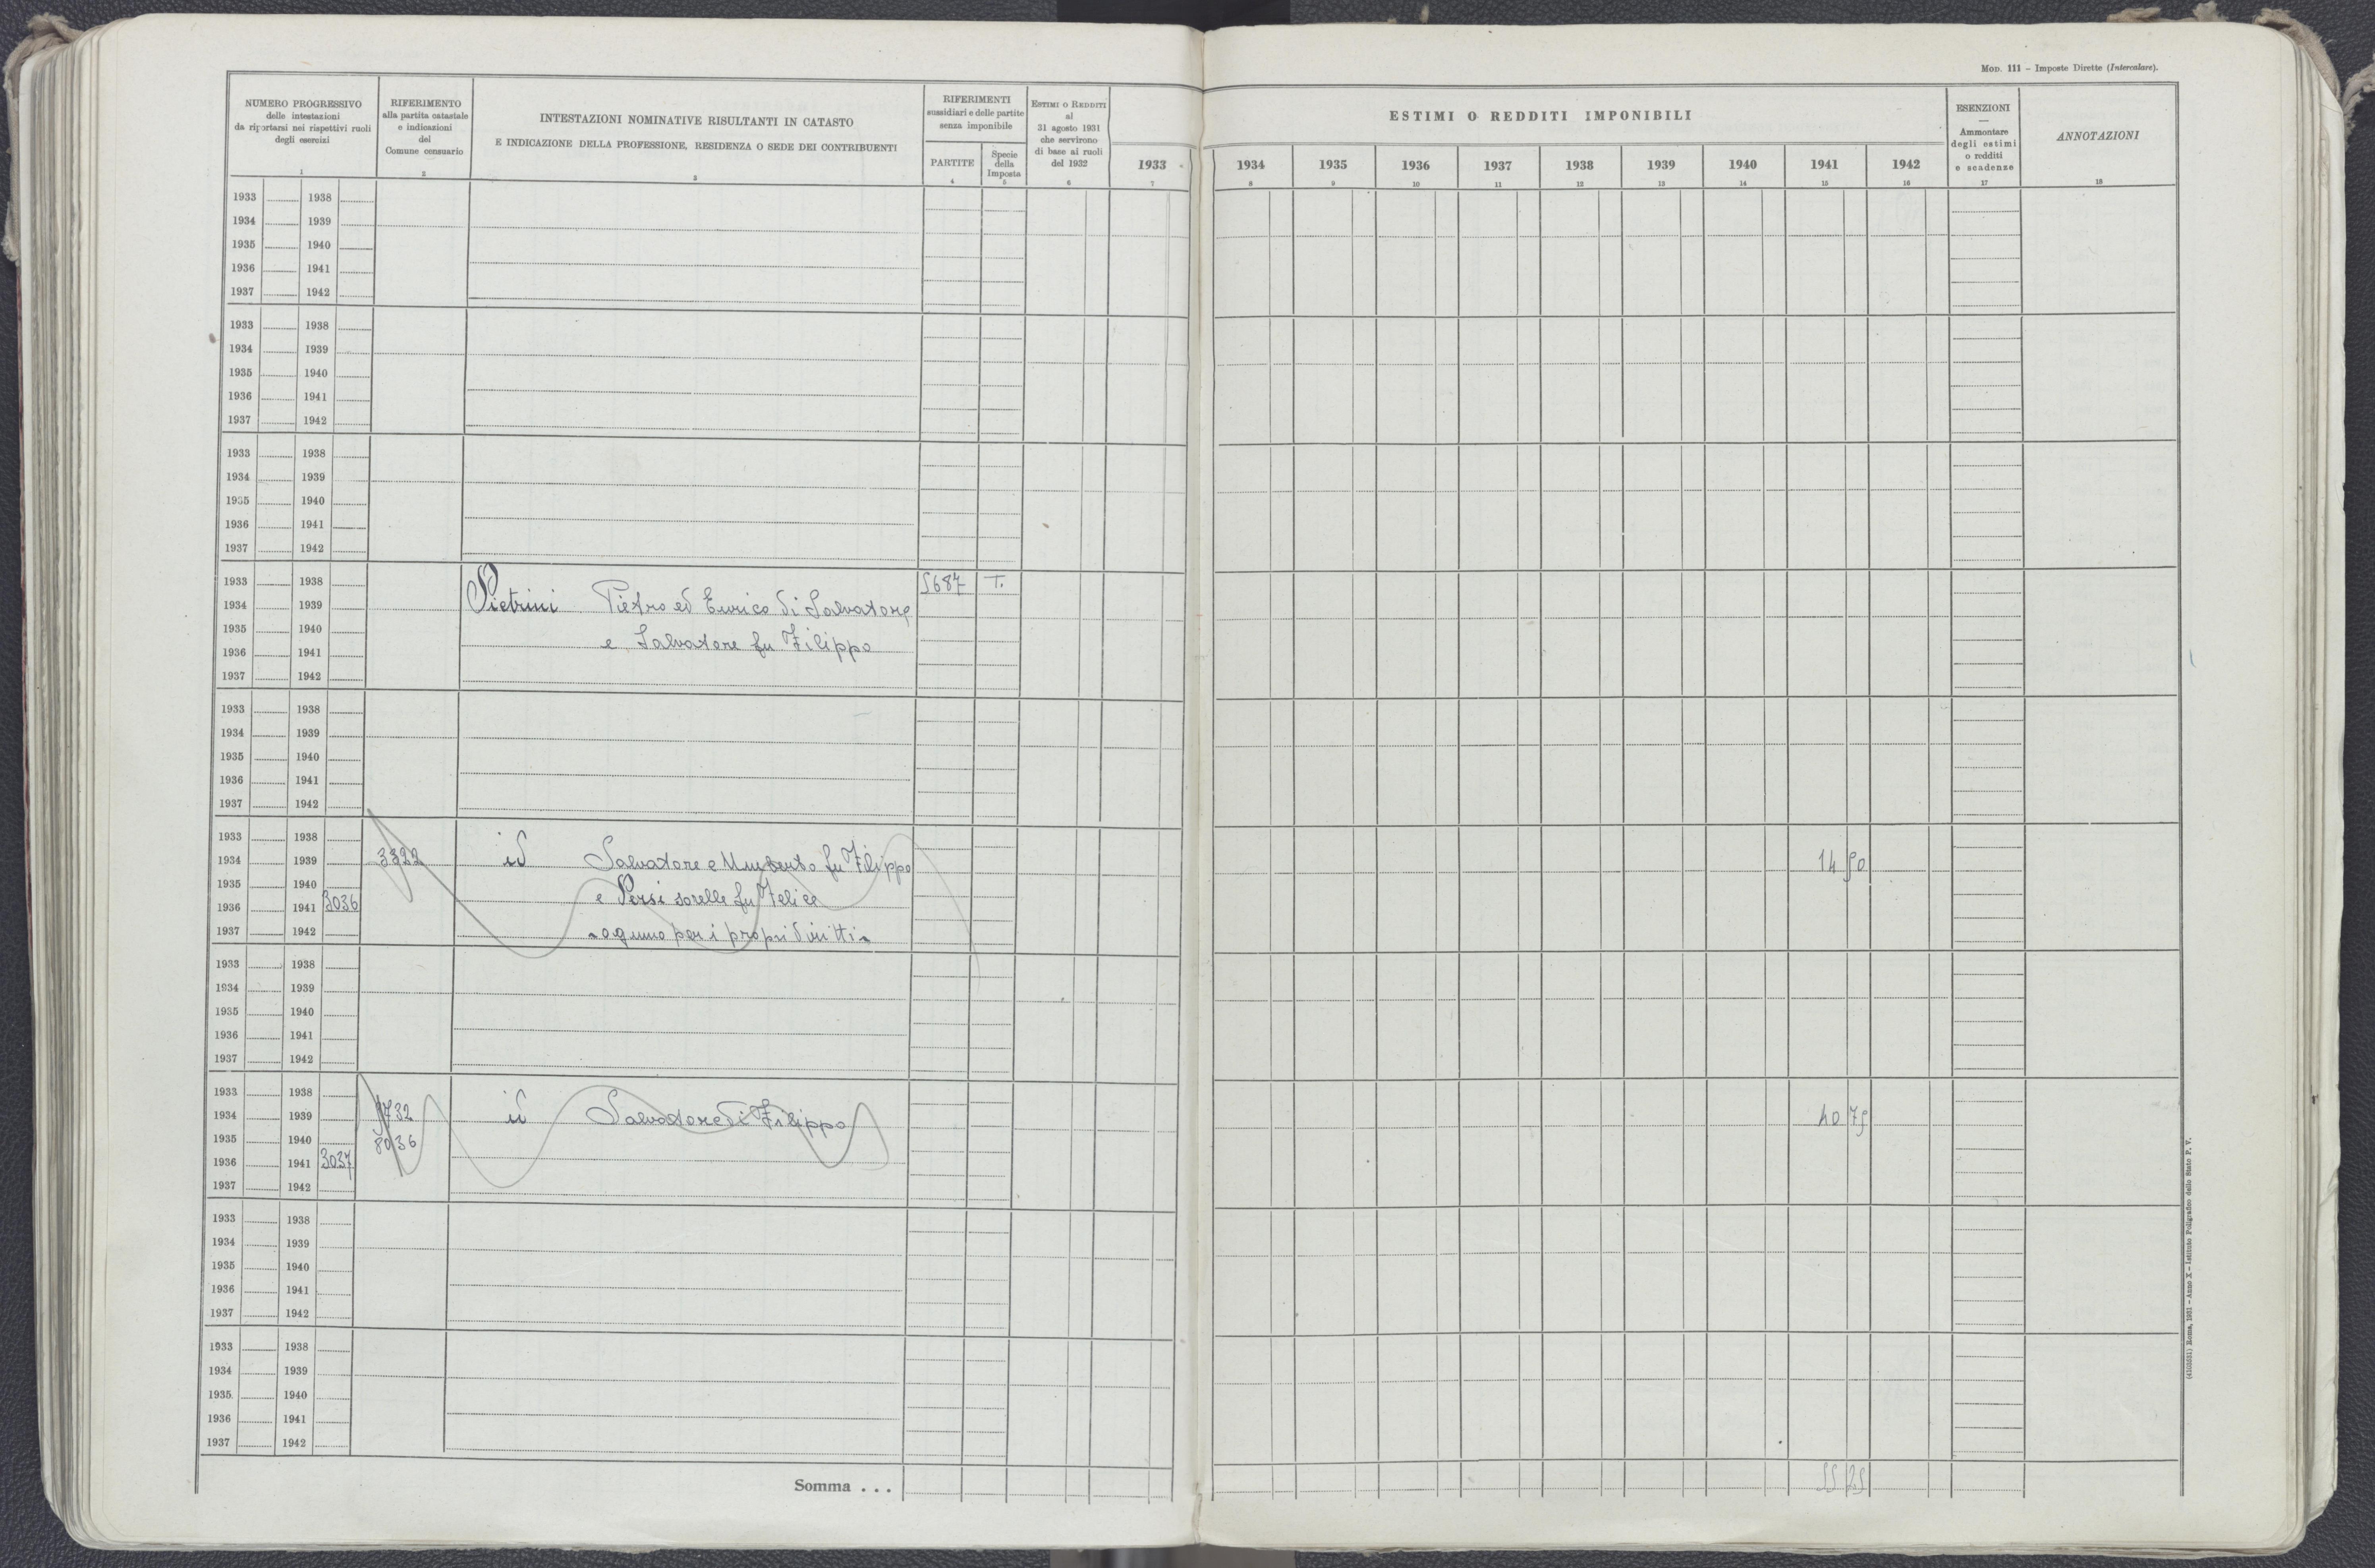 MOD. 111 – Imposte Dirette (Intercalare).
NUMERO PROGRESSIVO
delle intestazioni
da riportarsi nei rispettivi ruoli
degli esercizi
1
RIFERIMENTO
alla partita catastale
e indicazioni
del
Comune censuario
2
INTESTAZIONI NOMINATIVE RISULTANTI IN CATASTO
E INDICAZIONE DELLA PROFESSIONE, RESIDENZA O SEDE DEI CONTRIBUENTI
3
RIFERIMENTI
sussidiari e delle partite
senza imponibile
PARTITE
4
Specie
della
Imposta
5
ESTIMI O REDDITI
al
31 agosto 1931
che servirono
di base ai ruoli
del 1932
6
1933
7
ESTIMI O REDDITI IMPONIBILI
1934 1935 1936 1937 1938 1939 1940 1941 1942
8 9 10 11 12 13 14 15 16
ESENZIONI
—
Ammontare
degli estimi
o redditi
e scadenze
17
ANNOTAZIONI
18
1933 1938
1934 1939
1935 1940
1936 1941
1937 1942
1933 1938
1934 1939
1935 1940
1936 1941
1937 1942
1933 1938
1934 1939
1935 1940
1936 1941
1937 1942
1933 1938 5687 T.
1934 1939 Pietrini Pietro ed Enrico di Salvatore
1935 1940
1936 1941 e Salvatore fu Filippo
1937 1942
1933 1938
1934 1939
1935 1940
1936 1941
1937 1942
1933 1938
1934 1939 3322 id Salvatore e Umberto fu Filippo 14 50
1935 1940
1936 1941 3036 e Persi sorelle fu Felice
1937 1942 - ognuno per i propri diritti -
1933 1938
1934 1939
1935 1940
1936 1941
1937 1942
1933 1938
1934 1939 5732 id Salvatore di Filippo 40 75
1935 1940 8036
1936 1941 3037
1937 1942
1933 1938
1934 1939
1935 1940
1936 1941
1937 1942
1933 1938
1934 1939
1935 1940
1936 1941
1937 1942
Somma . . . 55 25
(4103931) Roma, 1931 – Anno X – Istituto Poligrafico dello Stato P. V.